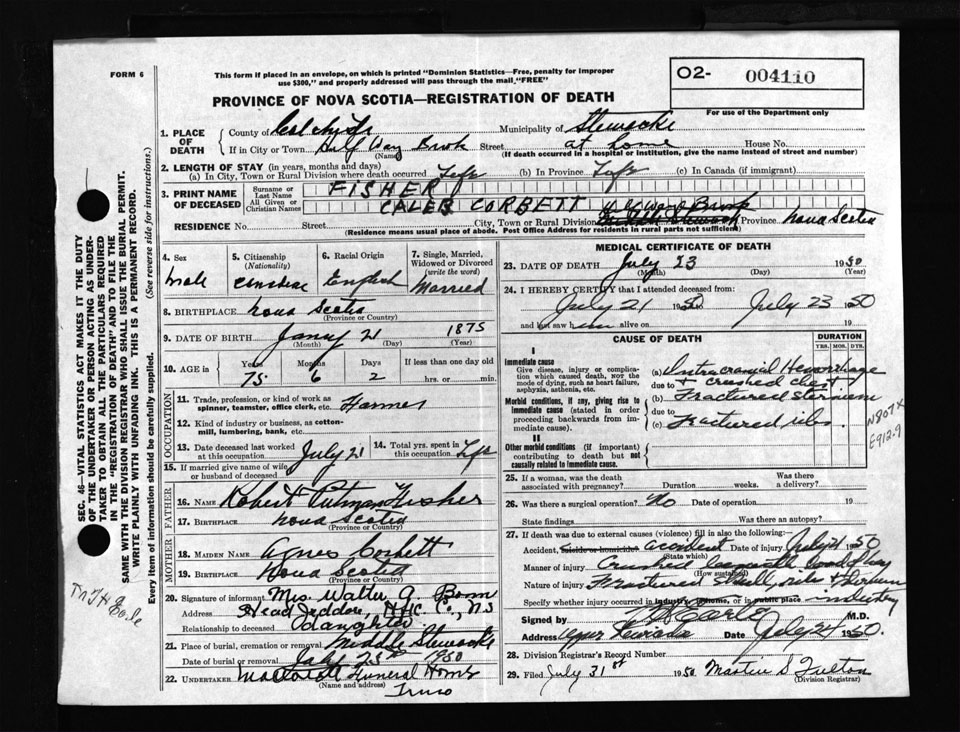 FORM 6
This form if placed in an envelope, on which is printed "Dominion Statistics—Free, penalty for improper use $300," and properly addressed will pass through the mail "FREE"
O2- 004110
For use of the Department only
PROVINCE OF NOVA SCOTIA—REGISTRATION OF DEATH
1. PLACE OF DEATH
County of Colchester Municipality of Stewiacke
If in City or Town Half Way Brook Street at home House No.
(Name) (If death occurred in a hospital or institution, give the name instead of street and number)
2. LENGTH OF STAY (in years, months and days)
(a) In City, Town or Rural Division where death occurred Life (b) In Province Life (c) In Canada (if immigrant)
3. PRINT NAME OF DECEASED
Surname or Last Name FISHER
All Given or Christian Names CALEB CORBETT
RESIDENCE No. Street City, Town or Rural Division Province Nova Scotia
(Residence means usual place of abode. Post Office Address for residents in rural parts not sufficient)
4. Sex Male
5. Citizenship (Nationality) Canadian
6. Racial Origin English
7. Single, Married, Widowed or Divorced (write the word) Married
8. BIRTHPLACE Nova Scotia
(Province or Country)
9. DATE OF BIRTH Jany 21 1875
(Month) (Day) (Year)
10. AGE in Years Months Days If less than one day old
75 6 2 hrs. or min.
OCCUPATION
11. Trade, profession, or kind of work as spinner, teamster, office clerk, etc. Farmer
12. Kind of industry or business, as cotton-mill, lumbering, bank, etc.
13. Date deceased last worked at this occupation July 21
14. Total yrs. spent in this occupation Life
15. If married give name of wife or husband of deceased
FATHER
16. NAME Robert Putman Fisher
17. BIRTHPLACE Nova Scotia
(Province or Country)
MOTHER
18. MAIDEN NAME Agnes Corbett
19. BIRTHPLACE Nova Scotia
(Province or Country)
20. Signature of informant Mrs. Walter G.
Address Head Jeddore, Hfx. Co., N.S
Relationship to deceased daughter
21. Place of burial, cremation or removal Middle Stewiacke
Date of burial or removal July 25th 1950
22. UNDERTAKER Funeral Home
(Name and address) Truro
MEDICAL CERTIFICATE OF DEATH
23. DATE OF DEATH July 23 1950
(Month) (Day) (Year)
24. I HEREBY CERTIFY that I attended deceased from:
July 21 1950 July 23 1950
and last saw him alive on 19
CAUSE OF DEATH
DURATION
YRS. MOS. DYS.
I
Immediate cause
Give disease, injury or complication which caused death, NOT the mode of dying, such as heart failure, asphyxia, asthenia, etc.
(a) Intracranial Hemorrhage
due to + crushed chest.
Morbid conditions, if any, giving rise to immediate cause (stated in order proceeding backwards from immediate cause).
(b) Fractured sternum
due to
(c) Fractured ribs.
II
Other morbid conditions (if important) contributing to death but not causally related to immediate cause.
N807X
E912.9
25. If a woman, was the death associated with pregnancy? Duration weeks. Was there a delivery?
26. Was there a surgical operation? No Date of operation 19
State findings Was there an autopsy?
27. If death was due to external causes (violence) fill in also the following:
Accident, suicide or homicide? accident Date of injury July 21 1950
(State which)
Manner of injury Crushed beneath load of hay
(How sustained)
Nature of injury Fractured skull, ribs + sternum
Specify whether injury occurred in industry, home, or in public place industry
Signed by M.D.
Address Upper Stewiacke Date July 24 1950.
28. Division Registrar's Record Number
29. Filed July 31st 1950 Martin S Fulton
(Division Registrar)
SEC. 46—VITAL STATISTICS ACT MAKES IT THE DUTY OF THE UNDERTAKER OR PERSON ACTING AS UNDERTAKER TO OBTAIN ALL THE PARTICULARS REQUIRED IN THE "REGISTRATION OF DEATH" AND TO FILE THE SAME WITH THE DIVISION REGISTRAR WHO SHALL ISSUE THE BURIAL PERMIT.
WRITE PLAINLY WITH UNFADING INK. THIS IS A PERMANENT RECORD.
Every item of information should be carefully supplied. (See reverse side for instructions.)